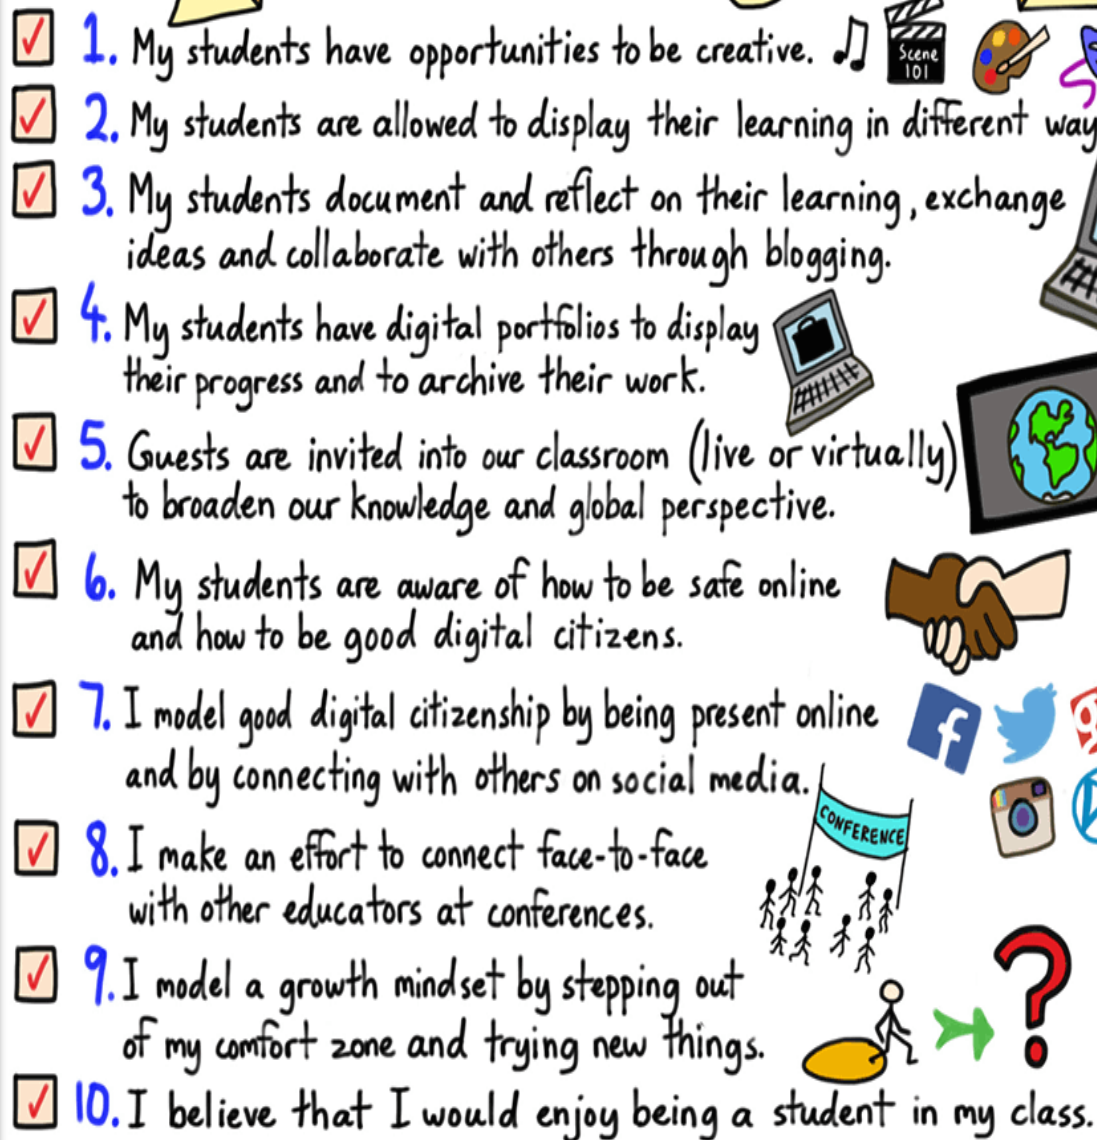 1. My students have opportunities to be creative.
Scene
101
2. My students are allowed to display their learning in different way
3. My students document and reflect on their learning, exchange
ideas and collaborate with others through blogging.
4. My students have digital portfolios to display
their progress and to archive their work.
5. Guests are invited into our classroom (live or virtually)
to broaden our knowledge and global perspective.
6. My students are aware of how to be safe online
and how to be good digital citizens.
7. I model good digital citizenship by being present online
and by connecting with others on social media.
f
g
CONFERENCE
8. I make an effort to connect face-to-face
with other educators at conferences.
9. I model a growth mindset by stepping out
of my comfort zone and trying new things.
?
10. I believe that I would enjoy being a student in my class.